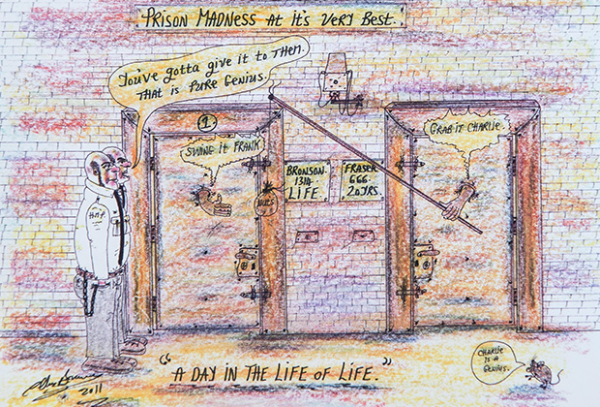 PRISON MADNESS AT IT'S VERY BEST.
You've gotta give it to THEM.
THAT is PURE GENIUS.
1.
SWING IT FRANK
GRAB IT CHARLIE.
BRONSON.
1314.
LIFE.
FRASER
666.
20YRS.
H.M.P
"A DAY IN THE LIFE OF LIFE."
CHARLIE
IS A
GENIUS.
2011